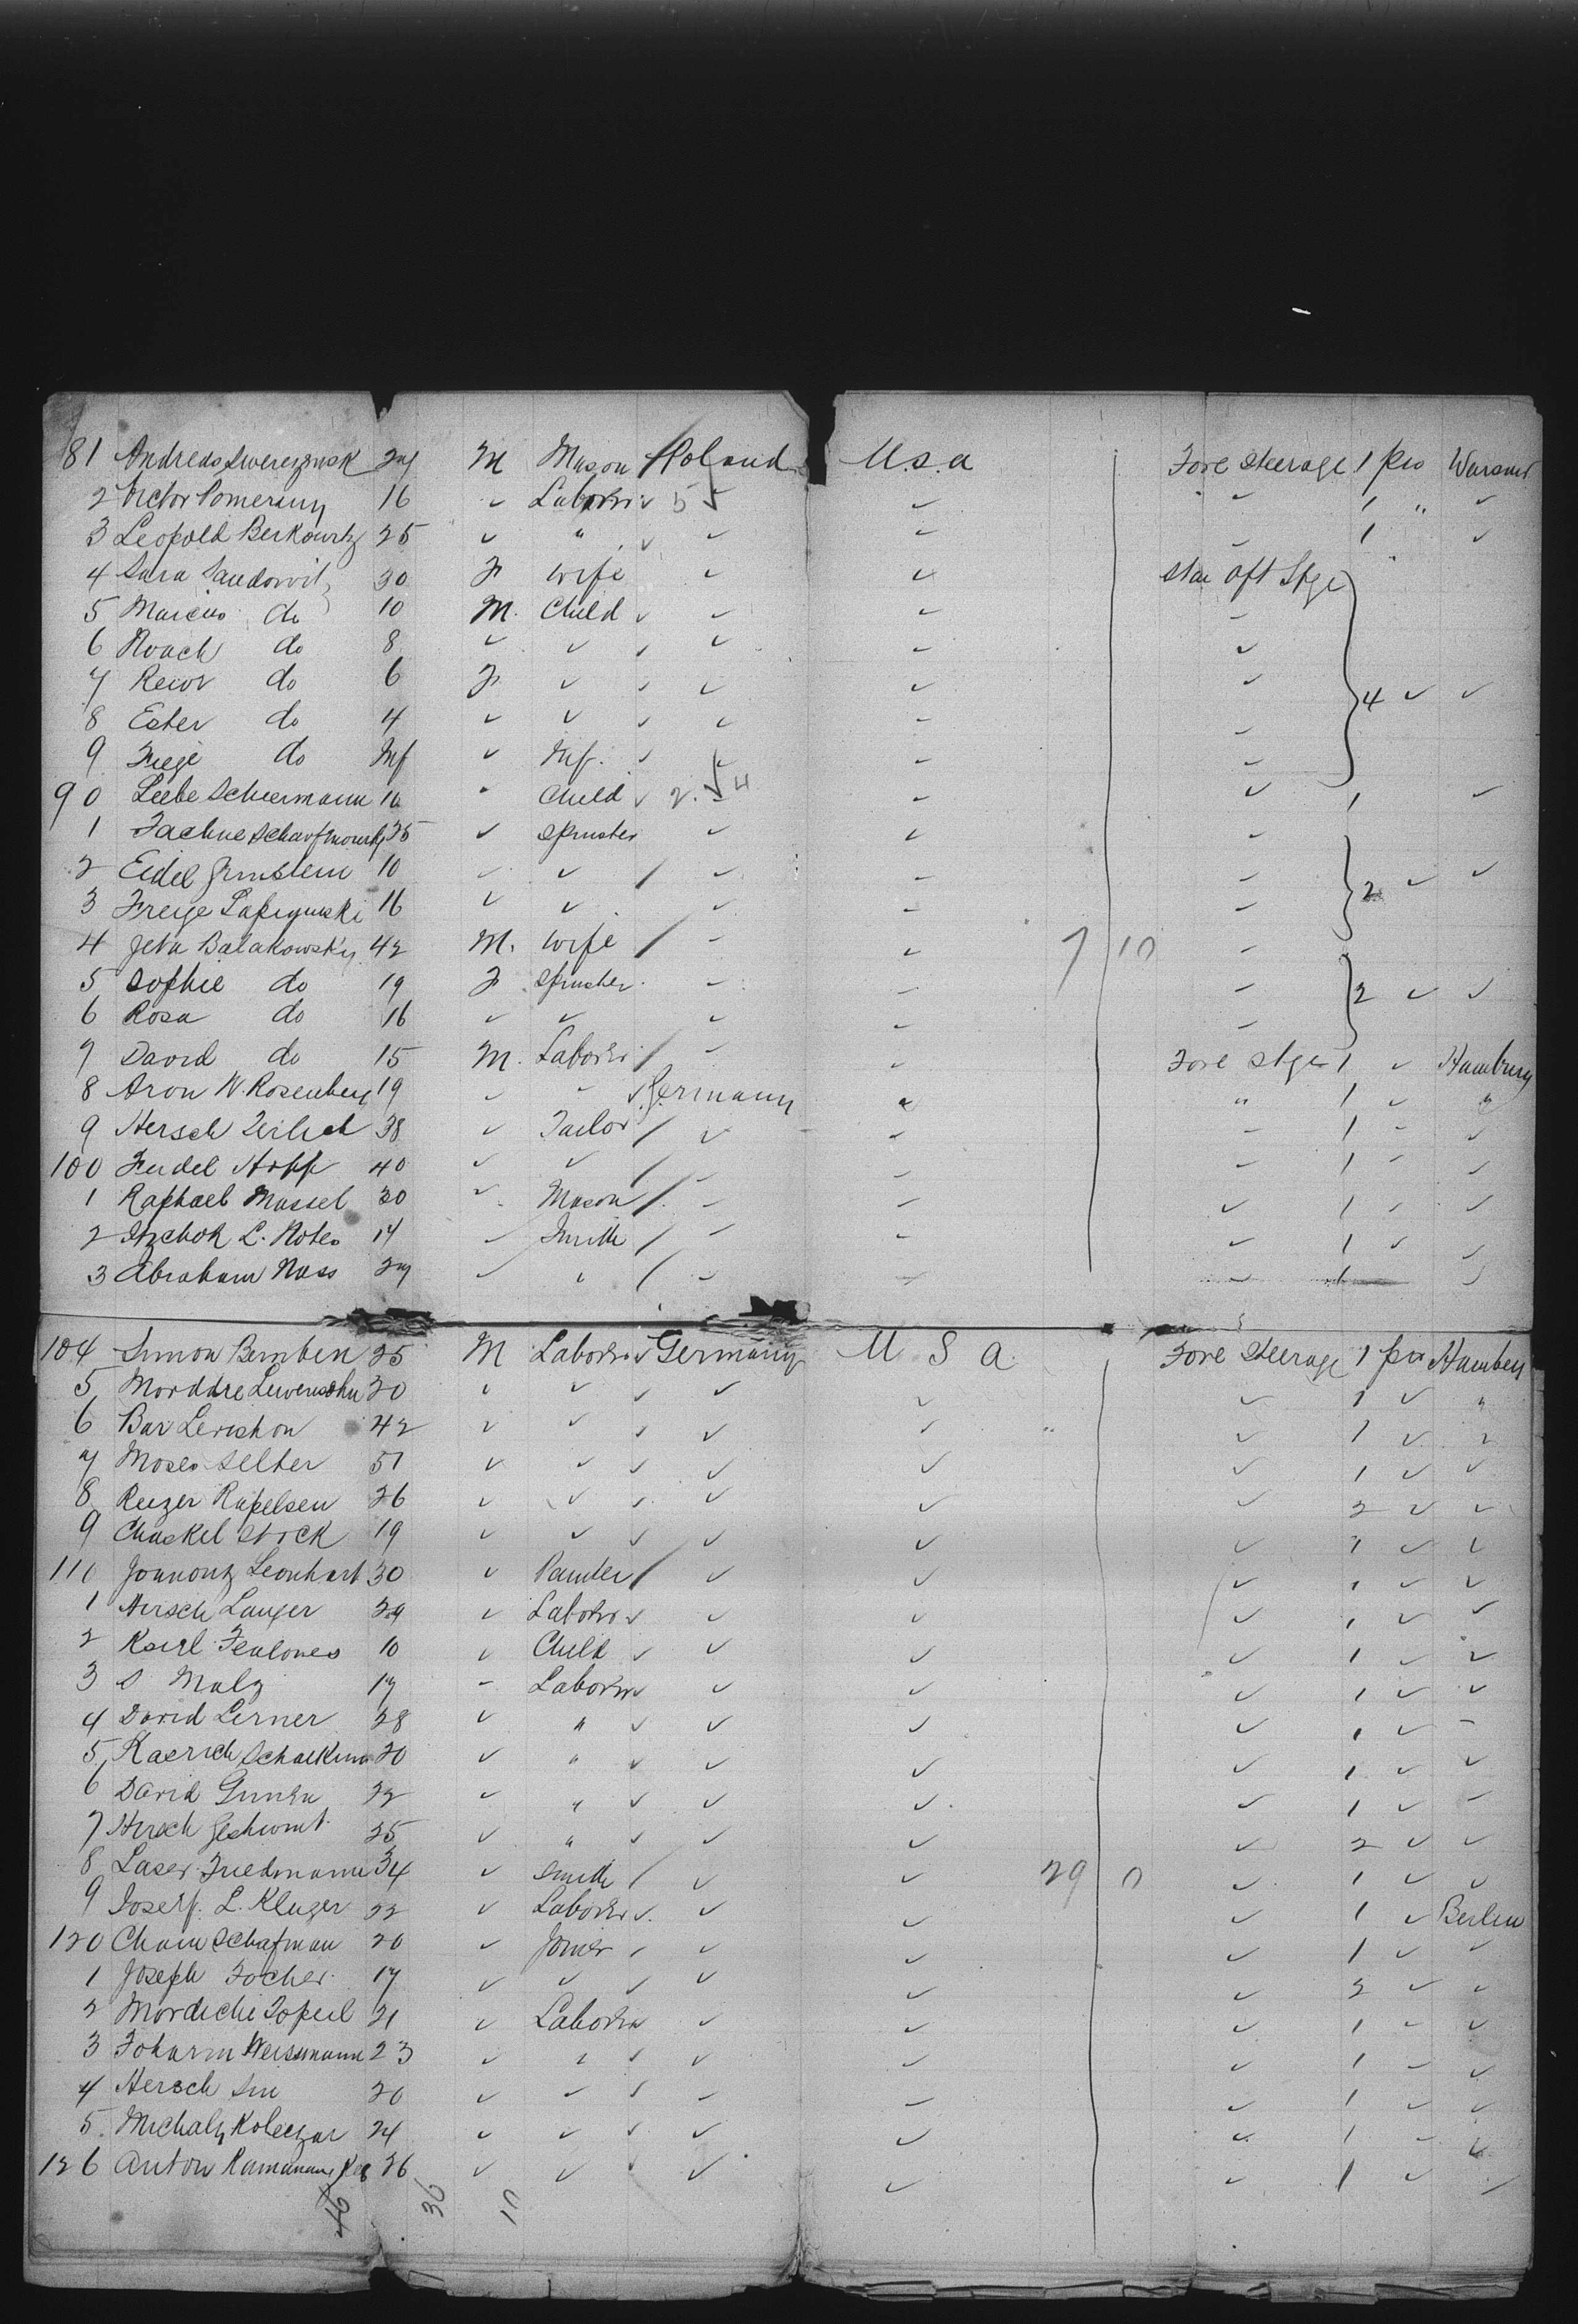 81 Andreas 27 M Mason Poland U.S.a Fore steerage 1 pce Warsaw
2 Victor Pomeranz 16 ✓ Laborer ✓ 5 ✓ ✓ 1 " ✓
3 Leopold Berkowitz 25 ✓ " ✓ ✓ ✓ 1 ✓
4 Sara Sandowitz 30 F wife ✓ ✓ Aft Stge
5 Marcus do 10 M. Child ✓ ✓ ✓
6 Noach do 8 ✓ ✓ ✓ ✓ ✓
7 do 6 F ✓ ✓ ✓ ✓ 4 ✓ ✓
8 Ester do 4 ✓ ✓ ✓ ✓ ✓
9 Feige do Inf ✓ Inf. ✓ ✓ ✓
90 Liebe Scheermann 10 " Child ✓ 2. 4 ✓ ✓ 1 ✓
1 35 ✓ spinster ✓ ✓ ✓
2 Eidel 10 ✓ ✓ / ✓ ✓ ✓ 2 ✓ ✓
3 Freige 16 ✓ ✓ ✓ ✓ ✓
4 Jeta Balakowsky 42 M. wife / ✓ ✓ 7 10 ✓
5 Sophie do 19 F spinster ✓ ✓ ✓ 2 ✓ ✓
6 Rosa do 16 ✓ ✓ ✓ ✓ ✓
7 David do 15 M. Laborer / ✓ ✓ Fore stge 1 ✓ Hamburg
8 Aron W. Rosenberg 19 ✓ ✓ ✓ Germany " " 1 ✓ "
9 Hersch 38 ✓ Tailor / ✓ ✓ ✓ 1 ✓ ✓
100 Feidel Hopp 40 ✓ ✓ / ✓ ✓ ✓ 1 ✓ ✓
1 Raphael Massel 30 ✓ Mason / ✓ ✓ ✓ 1 ✓ ✓
2 Itzchok L. Notes ✓ Smith / ✓ ✓ ✓ 1 ✓ ✓
3 Abraham Nass 27 ✓ " / ✓ ✓ ✓ 1 ✓
104 Simon Bemben 25 M Laborer ✓ Germany U S a Fore Steerage 1 pce Hamburg
5 20 ✓ ✓ ✓ ✓ ✓ ✓ 1 ✓ "
6 Bar Lewishon 42 ✓ ✓ ✓ ✓ ✓ ✓ 1 ✓ ✓
7 Moses Selber 51 ✓ ✓ ✓ ✓ ✓ ✓ 1 ✓ ✓
8 Rapelsen 26 ✓ ✓ ✓ ✓ ✓ ✓ 2 ✓ ✓
9 Chaskel Stock 19 ✓ ✓ ✓ ✓ ✓ ✓ 1 ✓ ✓
110 Leonhart 30 ✓ Painter / ✓ ✓ ✓ 1 ✓ ✓
1 Hersch Langer ✓ Laborer ✓ ✓ ✓ ✓ 1 ✓ ✓
2 10 ✓ Child ✓ ✓ ✓ ✓ 1 ✓ ✓
3 S Malz 17 ✓ Laborer ✓ ✓ ✓ ✓ 1 ✓ ✓
4 David Lerner 28 ✓ " ✓ ✓ ✓ ✓ 1 ✓ ✓
5 20 ✓ " ✓ ✓ ✓ ✓ 1 ✓ ✓
6 David 22 ✓ " ✓ ✓ ✓ ✓ 1 ✓ ✓
7 Hirsch 25 ✓ " ✓ ✓ ✓ ✓ 2 ✓ ✓
8 Laser Friedmann 34 ✓ Smith / ✓ ✓ 29 0 ✓ 1 ✓ ✓
9 Josef. L. Kluger 22 ✓ Laborer ✓ ✓ ✓ ✓ 1 ✓ Berlin
120 Chaim Schafman 20 ✓ Joiner ✓ ✓ ✓ ✓ 1 ✓ ✓
1 Joseph Focher 17 ✓ ✓ ✓ ✓ ✓ ✓ 2 ✓ ✓
2 Mordiche 21 ✓ Laborer ✓ ✓ ✓ 1 ✓ ✓
3 Weissmann 23 ✓ ✓ ✓ ✓ ✓ ✓ 1 ✓ ✓
4 Hersch 20 ✓ ✓ ✓ ✓ ✓ ✓ 1 ✓ ✓
5. Michaly Koleczar 24 ✓ ✓ ✓ ✓ ✓ ✓ 1 ✓ ✓
126 Anton 26 ✓ ✓ ✓ ✓ ✓ ✓ 1 ✓ ✓
46 36 10